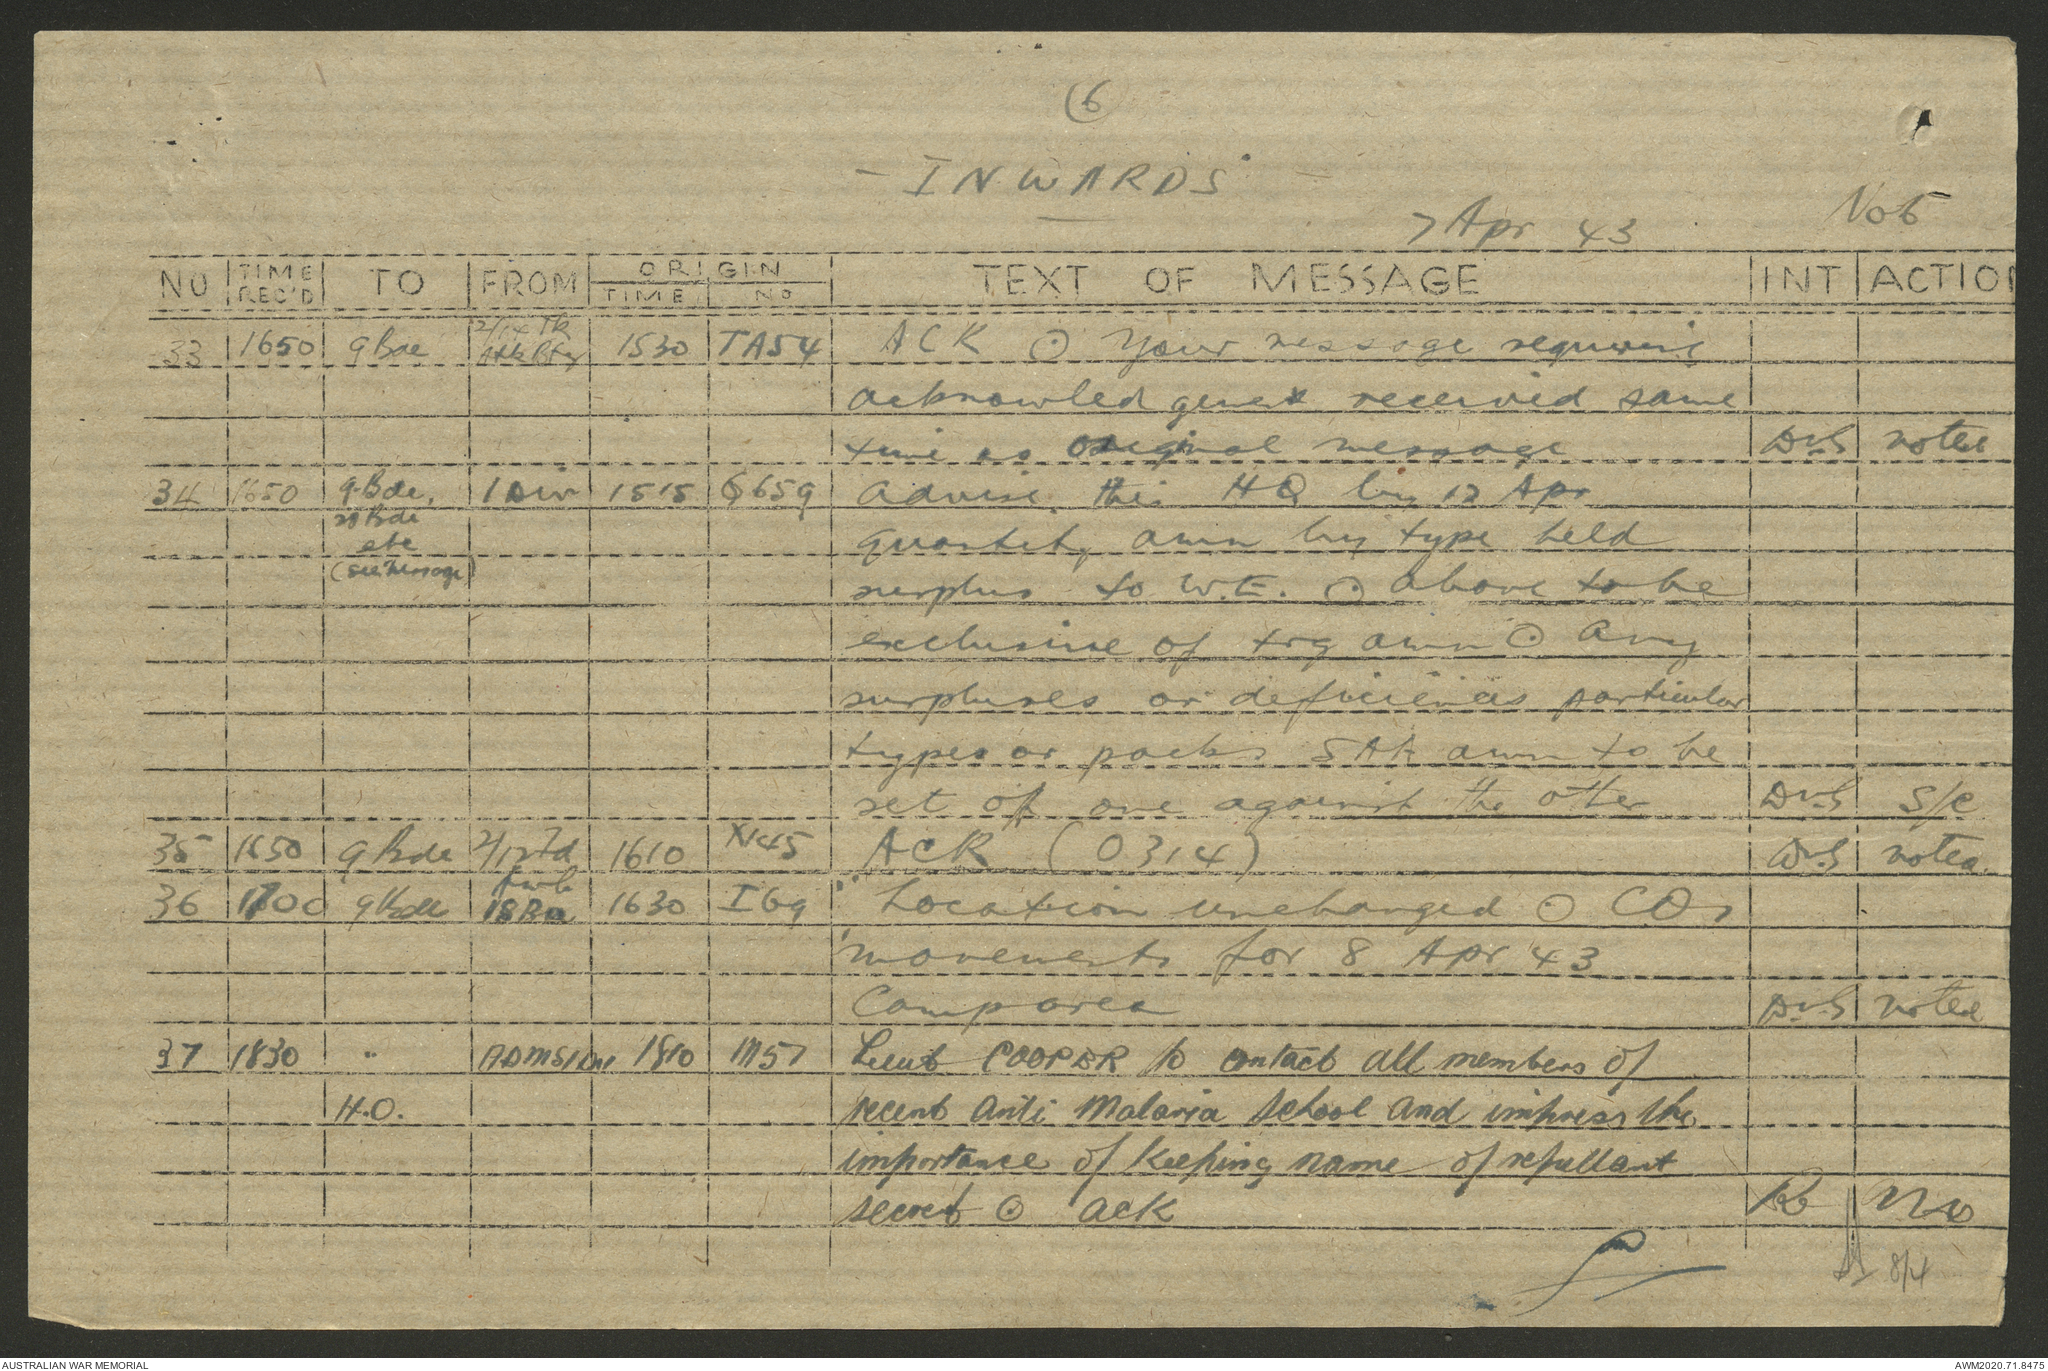 (6)
- INWARDS -
7 Apr 43
No 5
NO | TIME REC'D | TO | FROM | ORIGIN TIME | NO | TEXT OF MESSAGE | INT | ACTION
2/14 Tk
33 1650 9 Bde Atk Bty 1530 TA54 ACK ⊙ Your message requiring
acknowled gement received same
time as original message DvS noted
34 1650 9 Bde, 1 Div 1515 G659 advise this HQ by 12 Apr
20 Bde
etc quantity amn by type held
(see message) surplus to W.E. ⊙ above to be
exclusive of trg amn ⊙ any
surpluses or deficiencies particular
types or packs SAA amn to be
set off one against the other DvS S/C
35 1650 9 Bde 2/1 Fd 1610 X145 ACK (0314) DvS noted
amb
36 1700 9 Bde 18 Bn 1630 I69 Location unchanged ⊙ COs
movements for 8 Apr 43
Camp area DvS noted
37 1830 " ADMS 1 Div 1810 M57 Lieut COOPER to contact all members of
H.Q. recent Anti Malaria School and impress the
importance of keeping name of repellant
secret ⊙ ack
8/4
AUSTRALIAN WAR MEMORIAL
AWM2020.71.8475